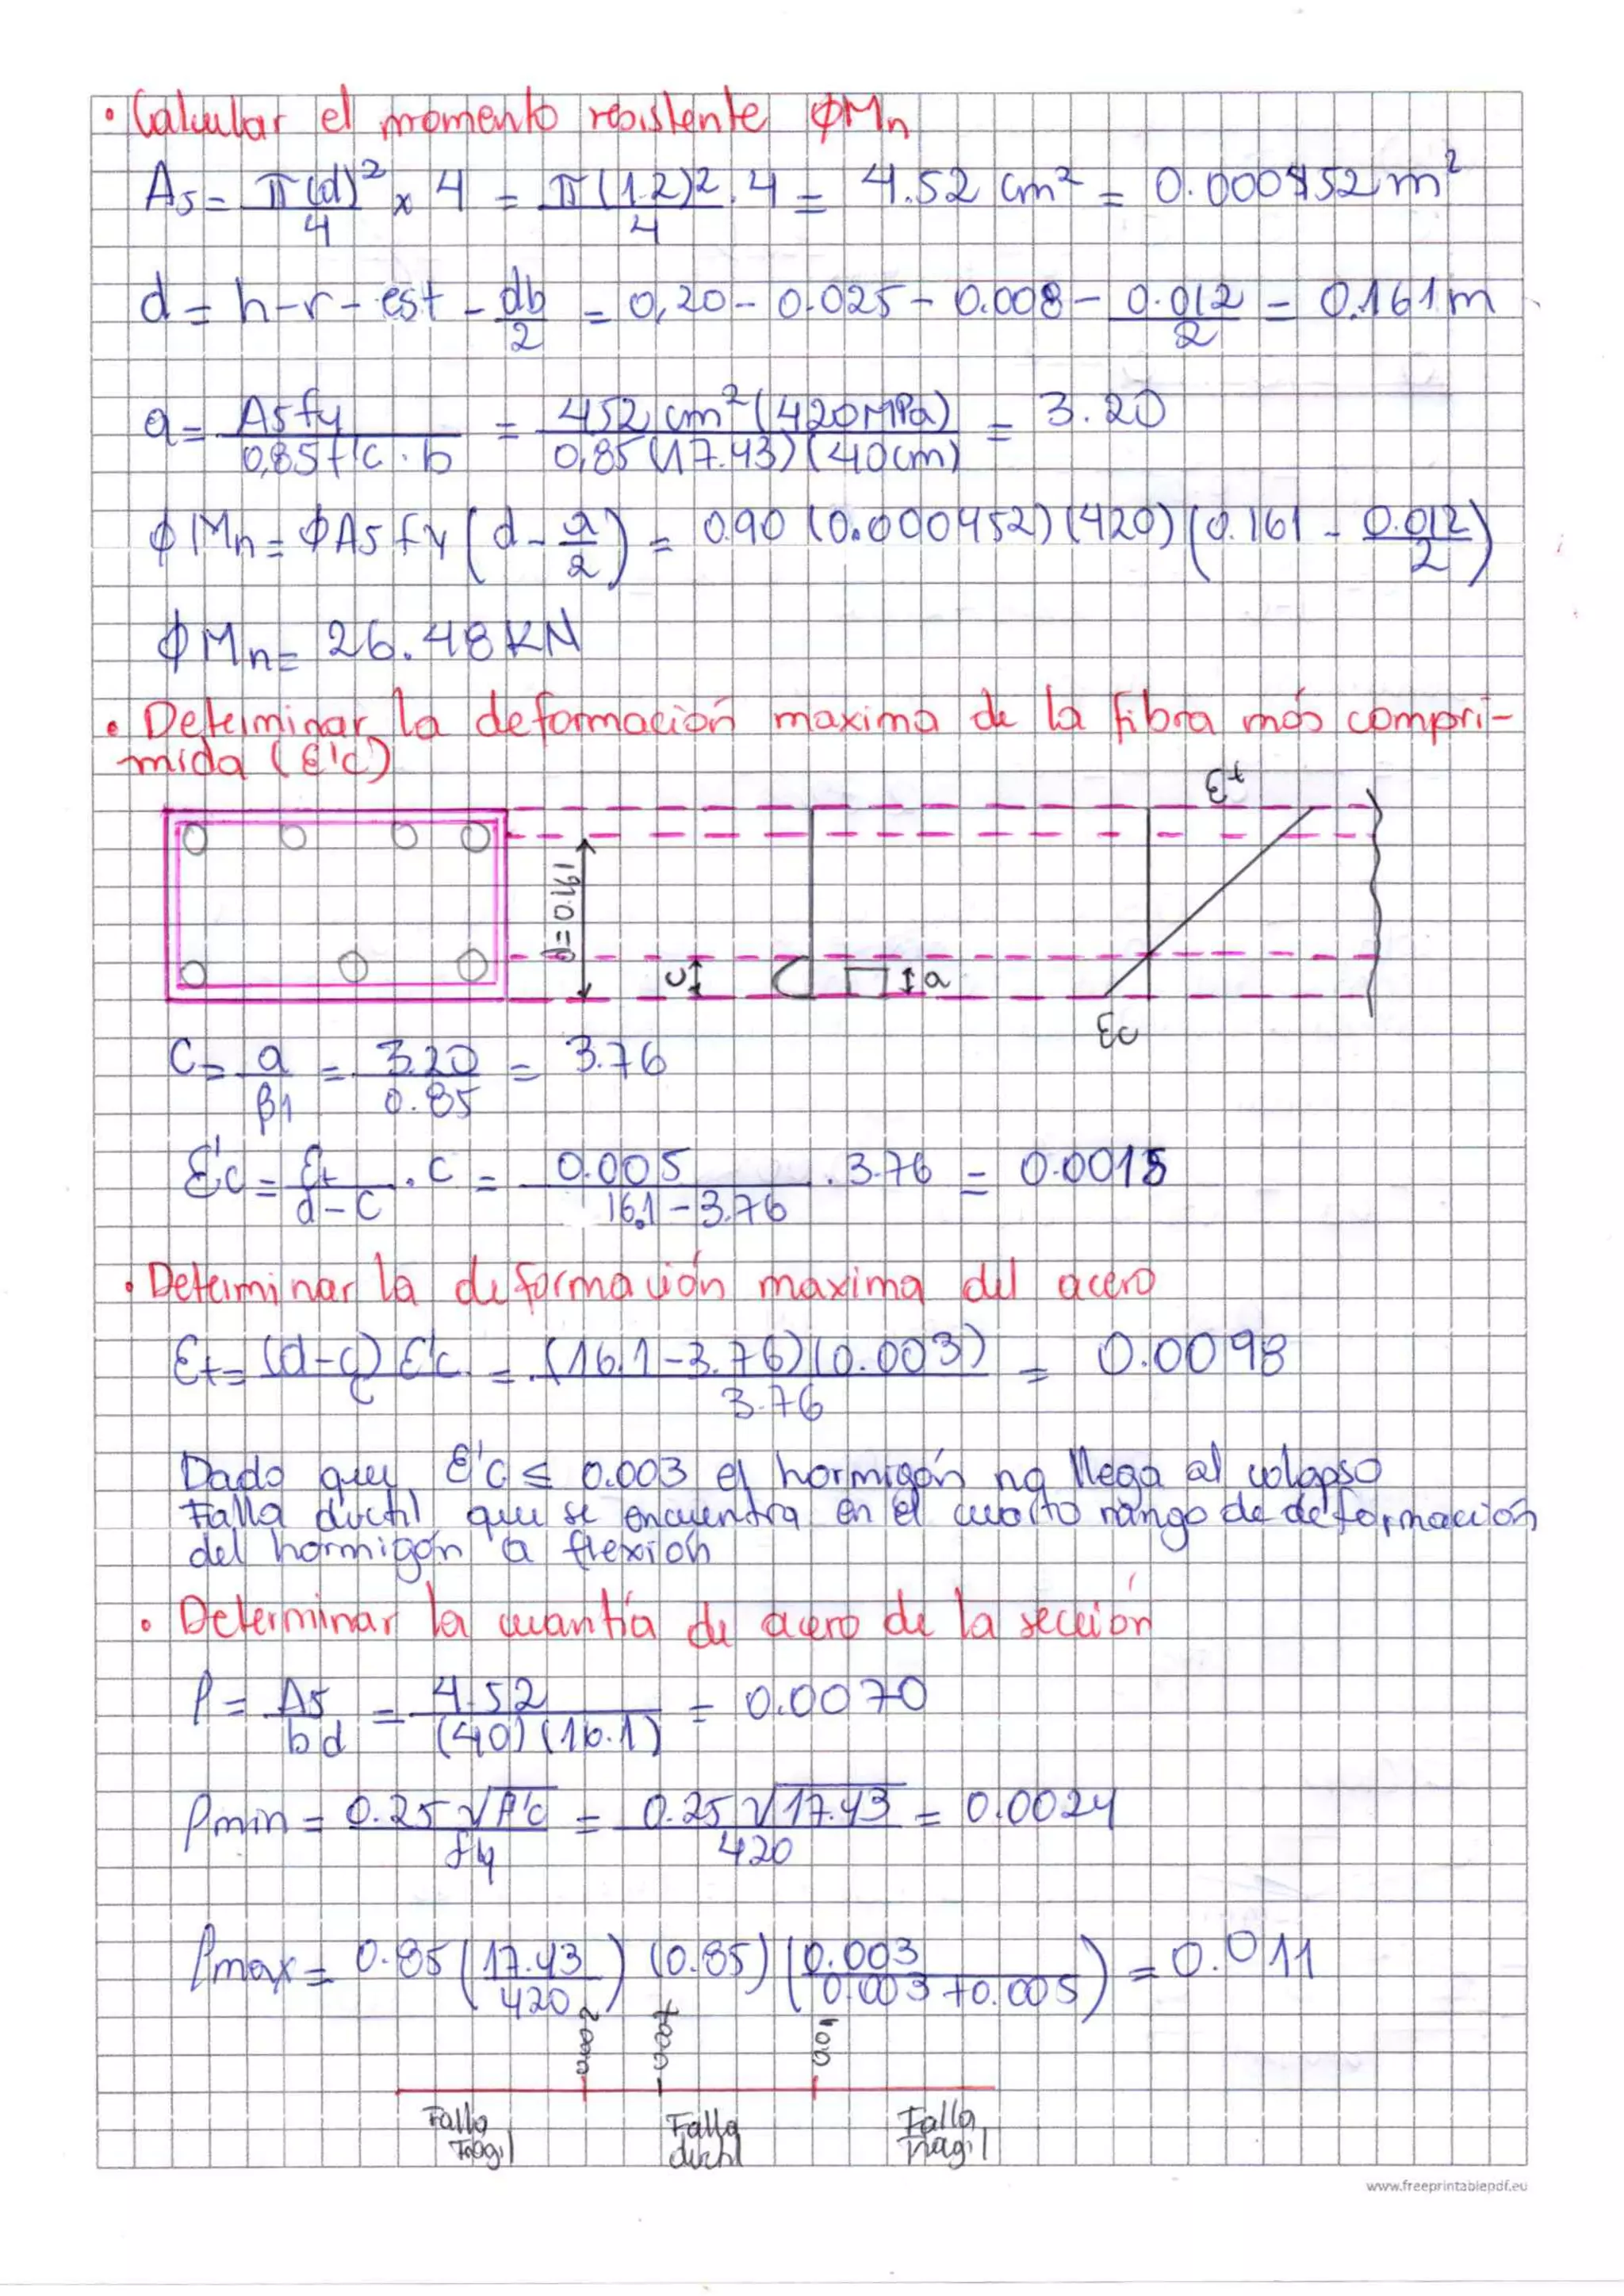 • Calcular el momento resistente ϕMn
As = π(d)²/4 x 4 = π(1.2)²/4 . 4 = 4.52 cm² = 0.000452 m²
d = h-r-est - db/2 = 0,20 - 0.025 - 0.008 - 0.012/2 = 0.161 m
a = Asfy/0,85f'c.b = 452 cm² (420MPa)/0,85(17.43)(40cm) = 3.20
ϕMn = ϕAsfy(d - a/2) = 0.90 (0.000452)(420)(0.161 - 0.012/2)
ϕMn = 26.48 KN
• Determinar la deformación maxima de la fibra más compri-
mida (ε'c)
εt
d=0.161
c
a
εc
C = a/β1 = 3.20/0.85 = 3.76
ε'c = εt/d-c . c = 0.005/16.1-3.76 . 3.76 = 0.0015
• Determinar la deformación maxima del acero
εt = (d-c) ε'c/c = (16.1-3.76)(0.003)/3.76 = 0.0098
Dado que ε'c ≤ 0.003 el hormigón no llega al colapso
Falla ductil que se encuentra en el cuarto rango de deformación
del hormigón a flexión
• Determinar la cuantía de acero de la sección
ρ = As/bd = 4.52/(40)(16.1) = 0.0070
ρmin = 0.25 √f'c/fy = 0.25 √17.43/420 = 0.0024
ρmax = 0.85 (17.43/420) (0.85) (0.003/0.003+0.005) = 0.011
0.002 0.007 0.01
Falla Fragil
Falla ductil
Falla Fragil
www.freeprintablepdf.eu